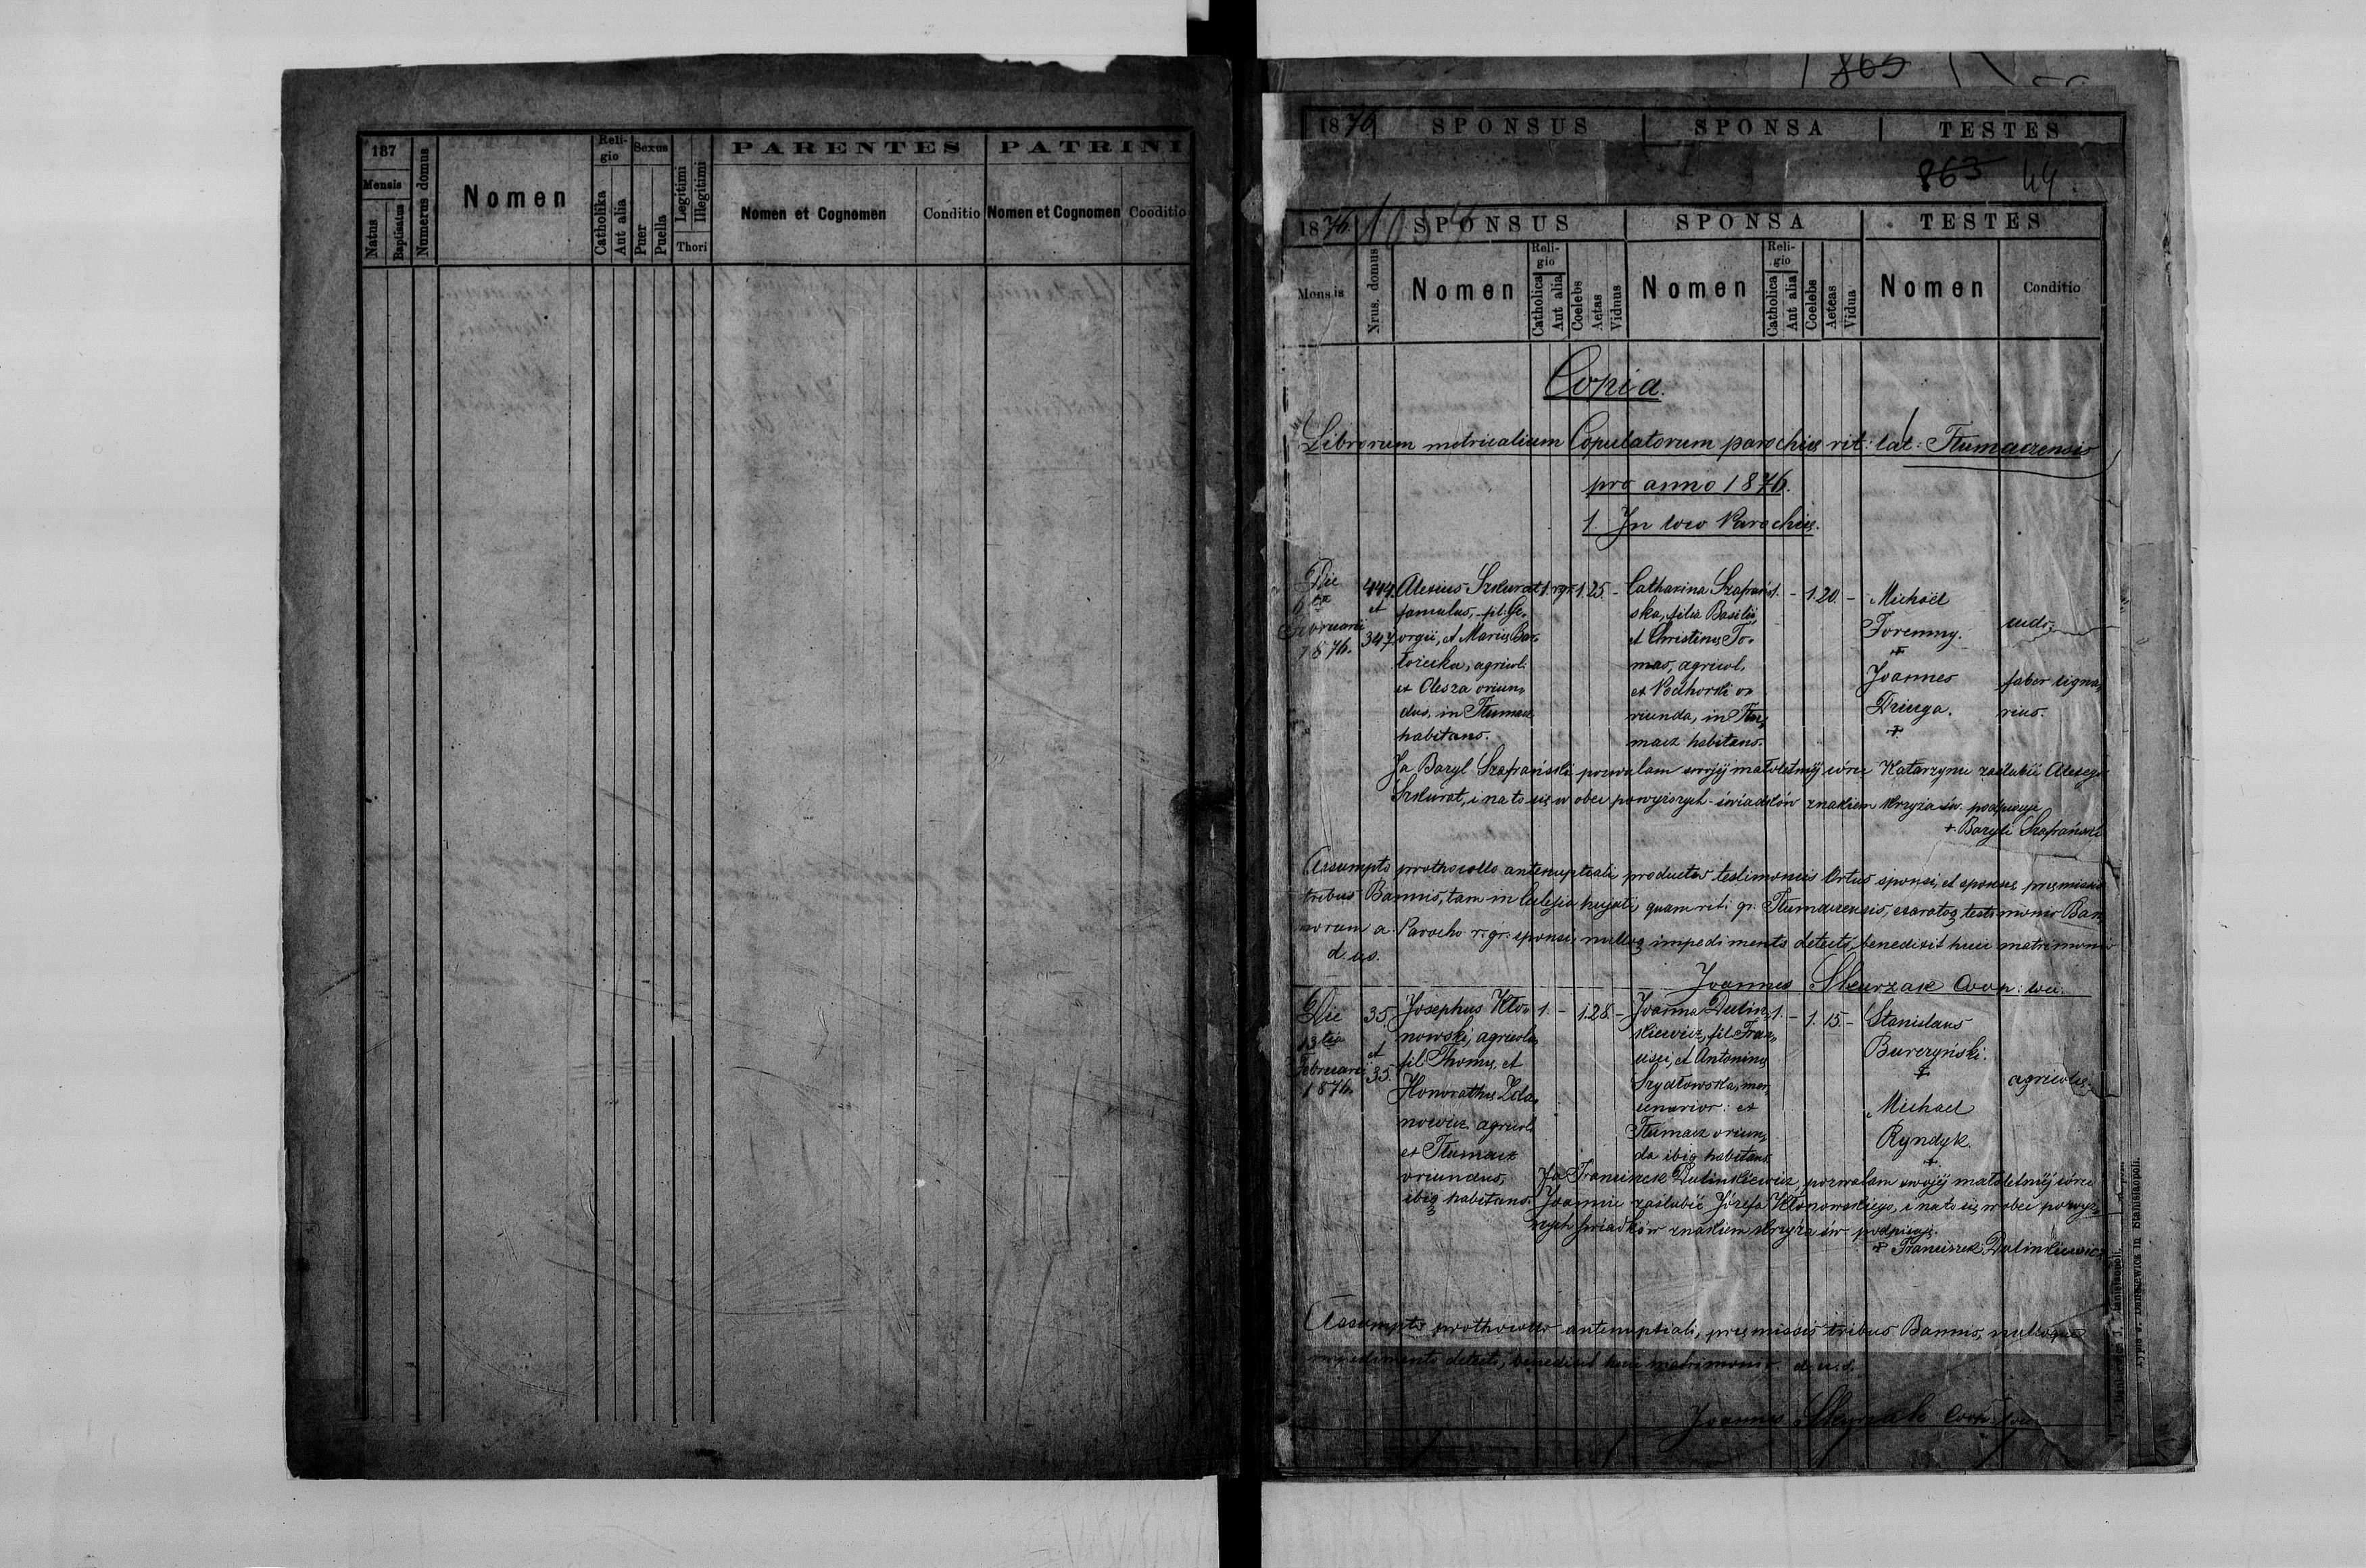 187
Mensis
Natus
Baptisatus
Numerus domus
Nomen
Reli-
gio
Catholika
Aut alia
Sexus
Puer
Puella
Legitimi
Illegitimi
Thori
PARENTES
Nomen et Cognomen
Conditio
PATRINI
Nomen et Cognomen
Cooditio
865
1876 SPONSUS SPONSA TESTES
863 44
1876 SPONSUS SPONSA TESTES
Mensis
Nrus. domus
Nomen
Reli-
gio
Catholica
Aut alia
Coelebs
Aetas
Viduus
Nomen
Reli-
gio
Catholica
Aut alia
Coelebs
Aeteas
Vidua
Nomen
Conditio
Copia.
Librorum metricalium Copulatorum parochiæ rit: lat: Tłumaczensis
pro anno 1876.
1. In loco Parochiæ.
Die
6ta
Februarii
1876.
444.
et
347
Alexius Szkurat
famulus, fil. Ge-
orgii, et Mariæ Ba-
agricol.
ex Olesza oriun-
dus, in Tłumacz
habitans.
1. r.gr. 1. 25. -
Catharina Szafrań-
ska, filia Basilii,
et Christinæ To-
mas, agricol.
ex Podhorki o-
riunda, in Tłu-
macz habitans.
1. - 1. 20. -
Michaël
Foremny.
+
Joannes
Dziuga.
+
faber ligna-
rius.
Ja Bazyl Szafrański pozwalam swojéj małoletniéj córce Katarzynie zaślubić Alexego
Szkurat, i na to się w obec powyższych świadków znakiem krzyża św. podpisuję
+ Bazyli Szafrański
Assumpto prothocollo antenuptiali productis testimoniis Ortus sponsi, et sponsæ, præmissis
tribus Bannis, tam in Ecclesia hujati, quam rit: gr. Tłumaczensis, exaratoq testimonio Ban-
norum a Parocho r. gr. sponsi, nulloq impedimento detecto, benedixit huic matrimonio
d. u. s.
Joannes Skurzak Coop: loci.
Die
13tia
Februarii
1876.
35.
et
35.
Josephus Kło-
nowski, agricola,
fil. Thomæ, et
Honorathæ Zda-
nowicz, agricol.
ex Tłumacz
oriundus,
ibiq habitans.
1. - 1. 28. -
Joanna Dulin-
kiewicz, fil. Fran-
cisci, et Antoninæ
Szydłowska, mer-
cenarior: ex
Tłumacz oriun-
da ibiq habitans.
1. - 1. 15. -
Stanislaus
Burczyński.
+
Michael
Ryndyk.
+
agricolæ.
Ja Franciszek Dulinkiewicz, pozwalam swojéj małoletniéj córce
Joannie zaślubić Józefa Kłonowskiego, i na to się w obec powyż-
szych świadków znakiem krzyża św podpisuję.
+ Franciszek Dulinkiewicz
Assumpto prothocollo antenuptiali, præmissis tribus Bannis, nulloque
impedimento detecto, benedixit huic matrimonio. d. u. s.
Joannes Skurzak Coop. loci.